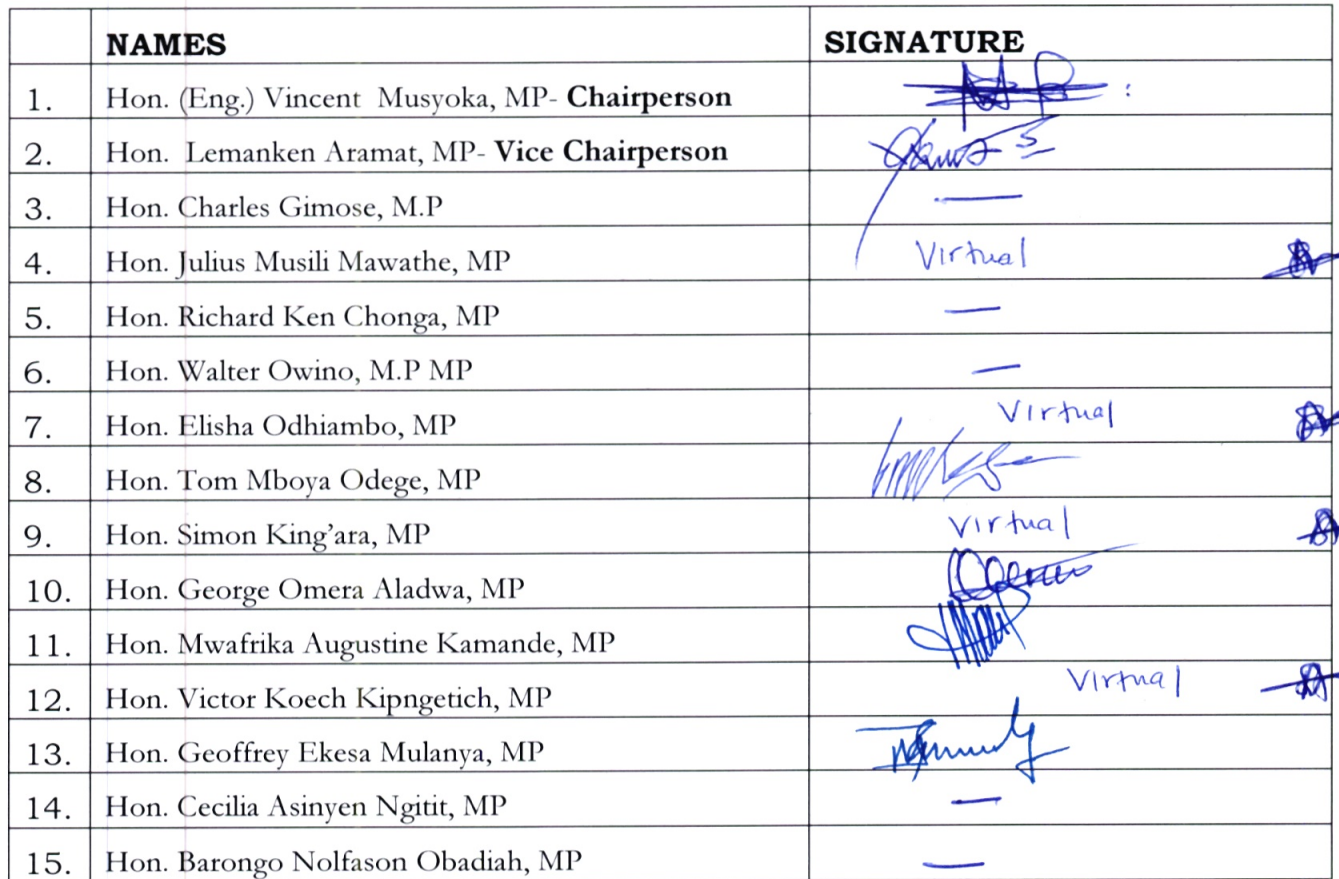 NAMES SIGNATURE
1. Hon. (Eng.) Vincent Musyoka, MP- Chairperson
2. Hon. Lemanken Aramat, MP- Vice Chairperson
3. Hon. Charles Gimose, M.P —
4. Hon. Julius Musili Mawathe, MP Virtual
5. Hon. Richard Ken Chonga, MP —
6. Hon. Walter Owino, M.P MP —
7. Hon. Elisha Odhiambo, MP Virtual
8. Hon. Tom Mboya Odege, MP
9. Hon. Simon King’ara, MP Virtual
10. Hon. George Omera Aladwa, MP
11. Hon. Mwafrika Augustine Kamande, MP
12. Hon. Victor Koech Kipngetich, MP Virtual
13. Hon. Geoffrey Ekesa Mulanya, MP
14. Hon. Cecilia Asinyen Ngitit, MP —
15. Hon. Barongo Nolfason Obadiah, MP —